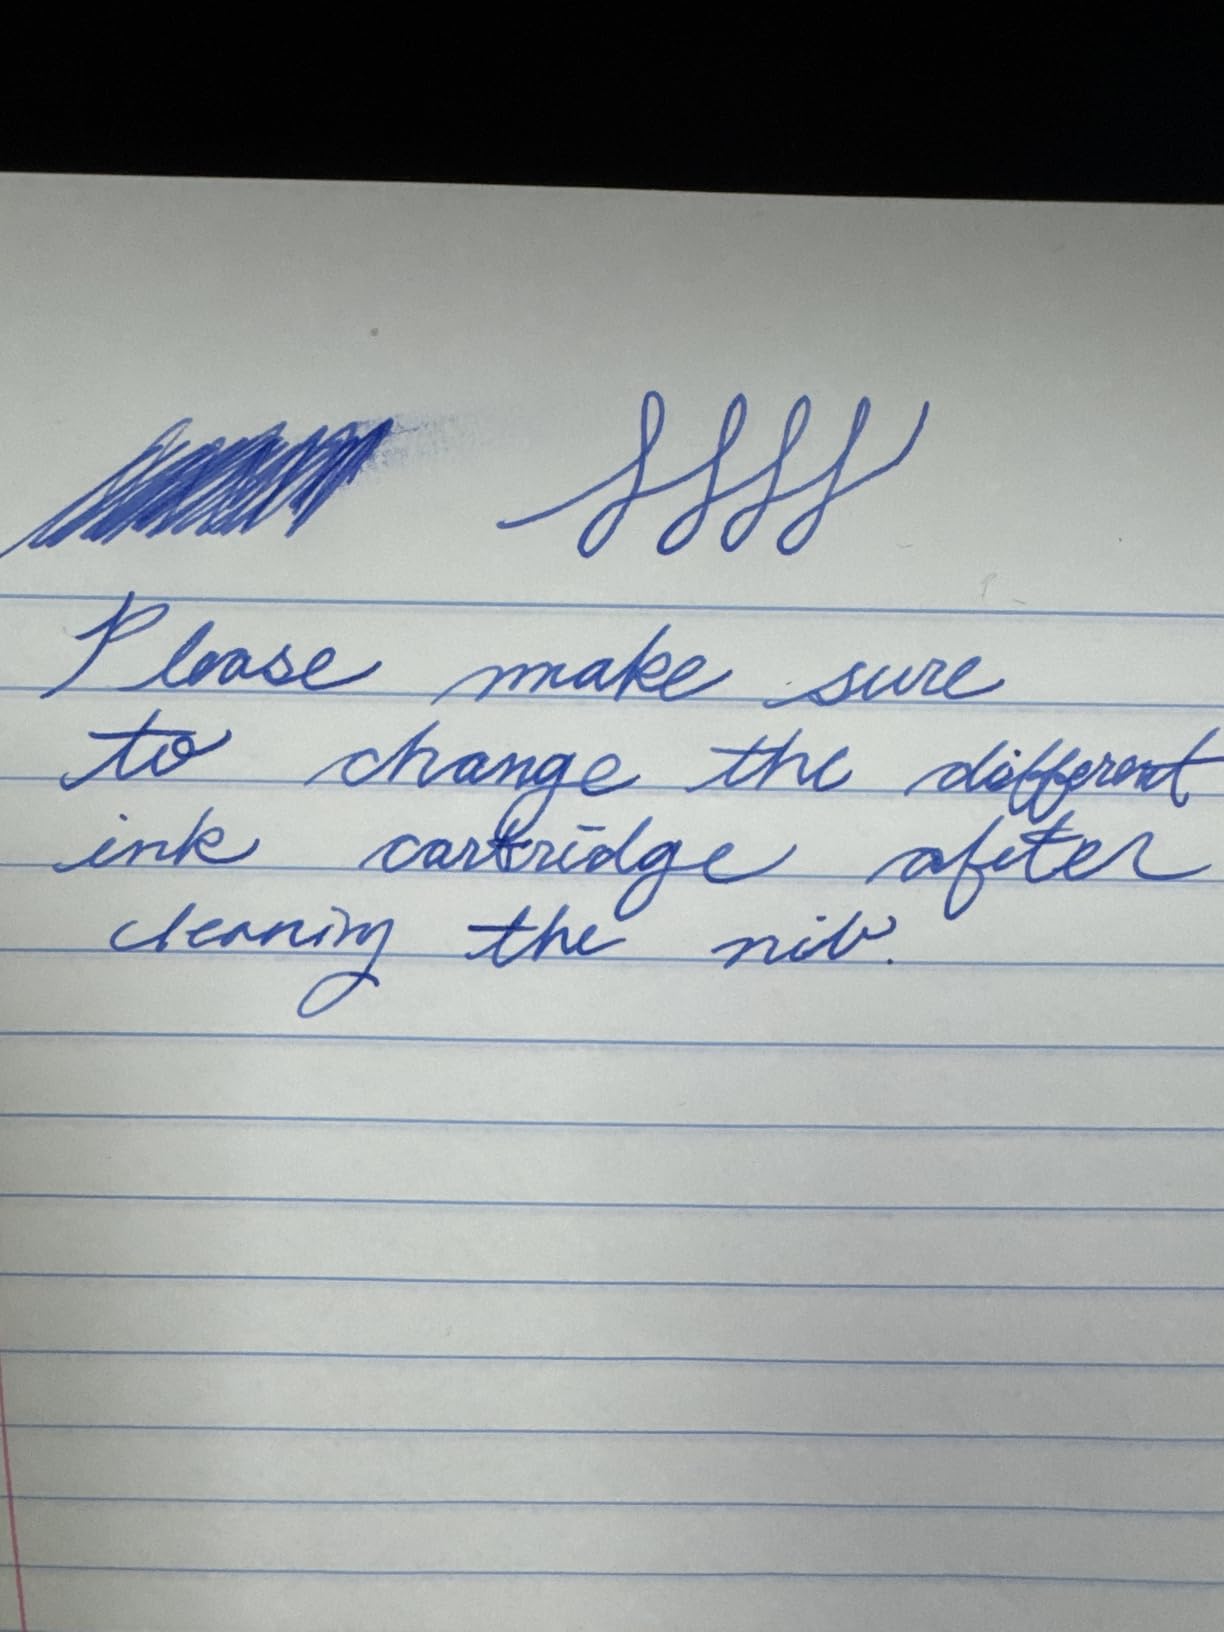 Please make sure
to change the different
ink cartridge after
cleaning the nib.